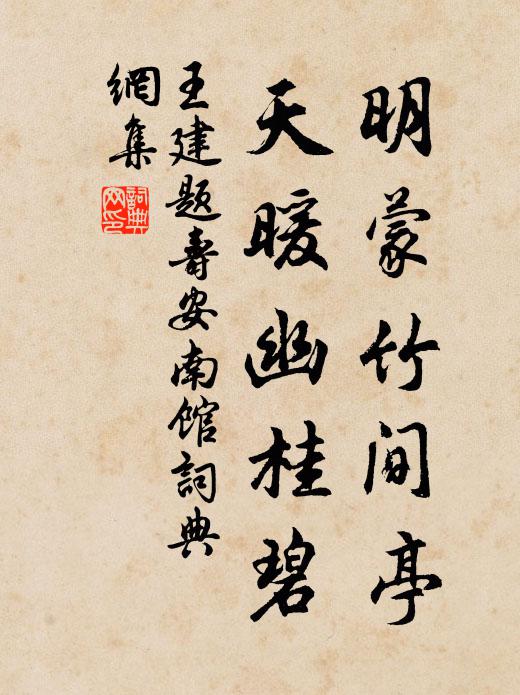 明蒙竹間亭
天暖幽桂碧
王建題壽安南館詞典
網集
詞典
网印